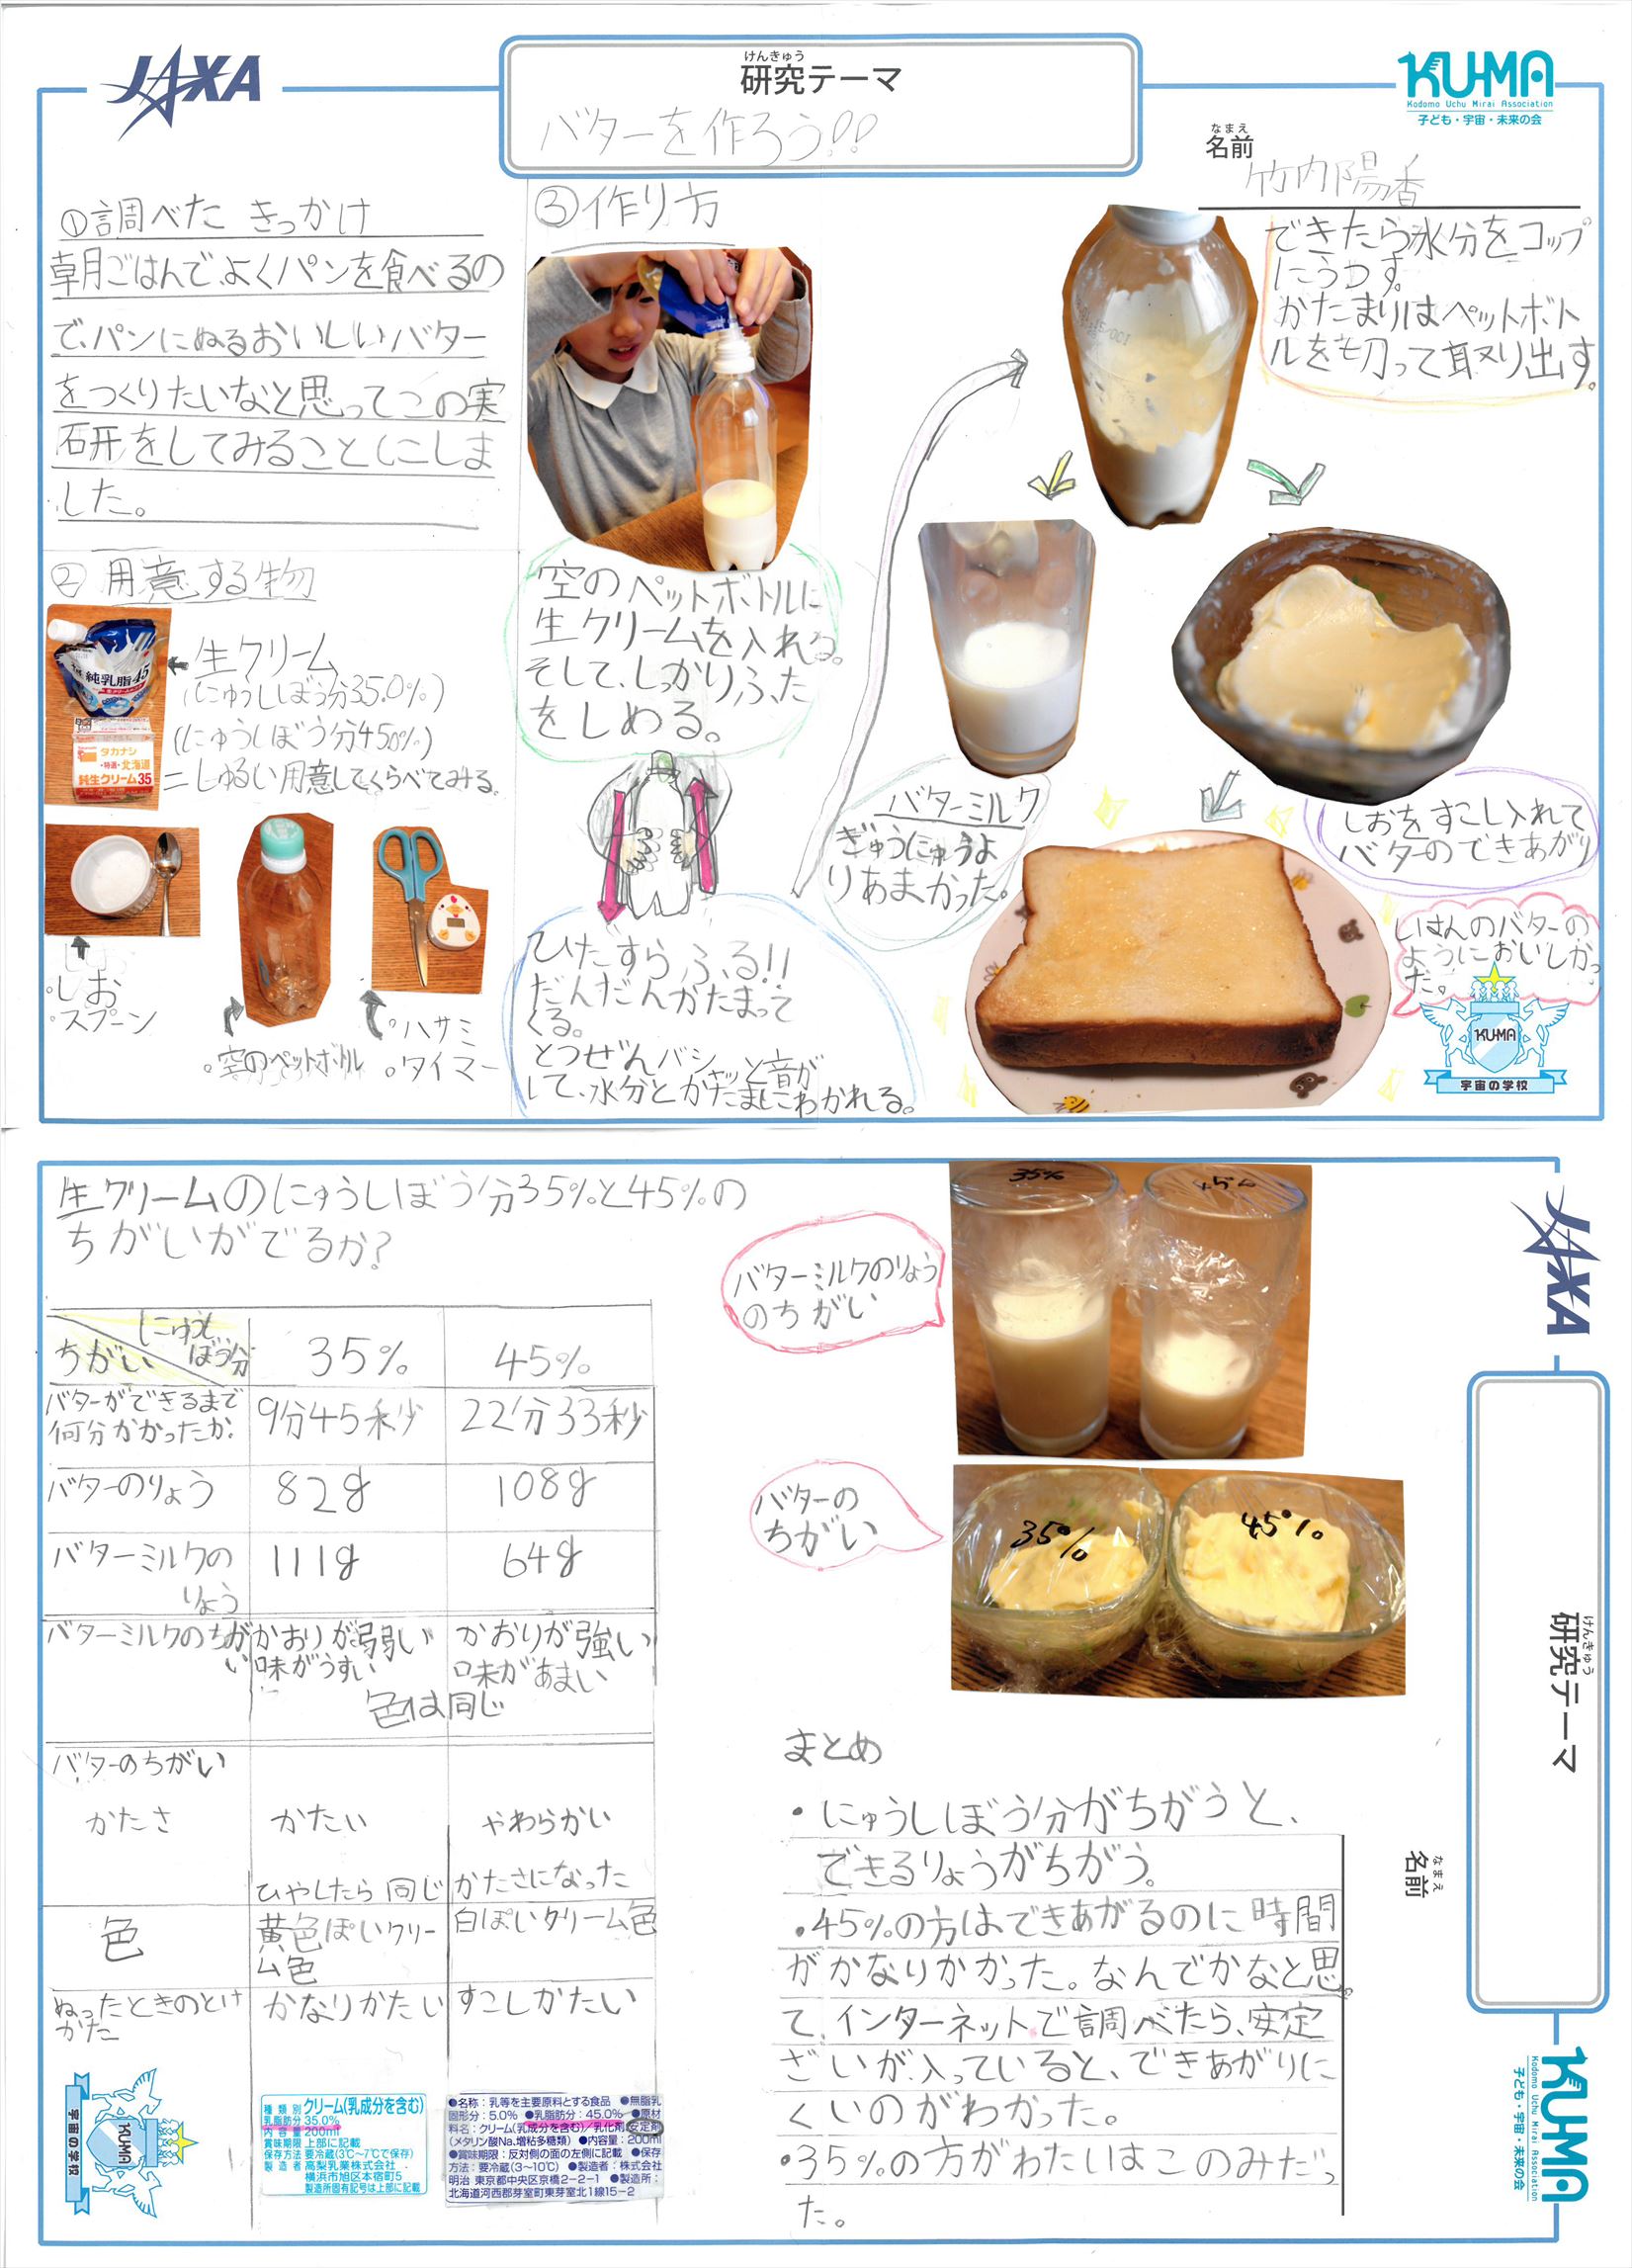 JAXA
けんきゅう
研究テーマ
バターを作ろう!!
KU-MA
Kodomo Uchu Mirai Association
子ども・宇宙・未来の会
なまえ
名前
竹内陽香
①調べた きっかけ
朝ごはんで、よくパンを食べるの
で、パンにぬるおいしいバター
をつくりたいなと思ってこの実
研をしてみることにしま
した。
②用意する物
純乳脂45
タカナシ
特選・北海道
純生クリーム35
生クリーム
(にゅうしぼう分35.0%)
(にゅうしぼう分45.0%)
二しゅるい用意してくらべてみる。
・しお
・スプーン
・空のペットボトル
・ハサミ
・タイマー
③作り方
空のペットボトルに
生クリームを入れる。
そして、しっかりふた
をしめる。
ひたすらふる!!
だんだんかたまって
くる。
とつぜんバシャッと音が
して、水分とかたまりにわかれる。
できたら水分をコップ
にうつす。
かたまりはペットボト
ルを切って取り出す。
バターミルク
ぎゅうにゅうよ
りあまかった。
しおをすこし入れて
バターのできあがり
しはんのバターの
ようにおいしかっ
た。
KU-MA
宇宙の学校
生クリームのにゅうしぼう分35%と45%の
ちがいがでるか?
にゅうし
ぼう分
ちがい
35%
45%
バターができるまで
何分かかったか。
9分45秒
22分33秒
バターのりょう
82g
108g
バターミルクの
りょう
111g
64g
バターミルクのちがい
かおりが弱い
味がうすい
かおりが強い
味があまい
色は同じ
バターのちがい
かたさ
かたい
やわらかい
ひやしたら同じかたさになった
色
黄色ぽいクリー
ム色
白ぽいクリーム色
ぬったときのとけ
かた
かなりかたい
すこしかたい
種類別 クリーム(乳成分を含む)
乳脂肪分 35.0%
内容量 200ml
賞味期限 上部に記載
保存方法 要冷蔵(3℃~7℃で保存)
製造者 高梨乳業株式会社
横浜市旭区本宿町5
製造所固有記号は上部に記載
●名称:乳等を主要原料とする食品 ●無脂乳
固形分:5.0% ●乳脂肪分:45.0% ●原材
料名:クリーム(乳成分を含む)/乳化剤、安定剤
(メタリン酸Na、増粘多糖類) ●内容量:200ml
●賞味期限:反対側の面の左側に記載 ●保存
方法:要冷蔵(3~10℃) ●製造者:株式会社
明治 東京都中央区京橋2-2-1 ●製造所:
北海道河西郡芽室町東芽室北1線15-2
KU-MA
宇宙の学校
バターミルクのりょう
のちがい
35%
45%
バターの
ちがい
35%
45%
まとめ
・にゅうしぼう分がちがうと、
できるりょうがちがう。
・45%の方はできあがるのに時間
がかなりかかった。なんでかなと思っ
て、インターネットで調べたら、安定
ざいが入っていると、できあがりに
くいのがわかった。
・35%の方がわたしはこのみだっ
た。
JAXA
けんきゅう
研究テーマ
なまえ
名前
KU-MA
Kodomo Uchu Mirai Association
子ども・宇宙・未来の会